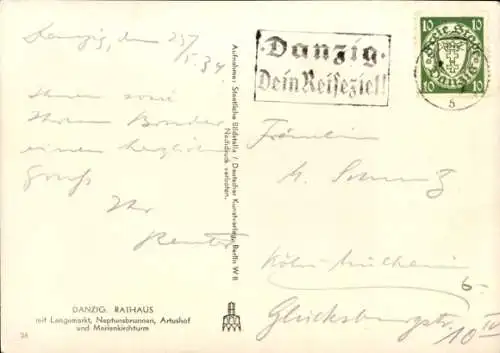 Danzig, den 25/
5.34
Ihnen sowie
Ihrem Bruder
einen herzlichen
Gruß
Ihr
Aufnahme: Staatliche Bildstelle / Deutscher Kunstverlag, Berlin W 8
Nachdruck verboten.
DANZIG: RATHAUS
mit Langemarkt, Neptunsbrunnen, Artushof
und Marienkirchturm
26
·Danzig·
Dein Reiseziel!
10 10
Freie Stadt
Danzig
10 10
5
Fräulein
Köln-Mülheim
Glücksburgstr.
10 IV